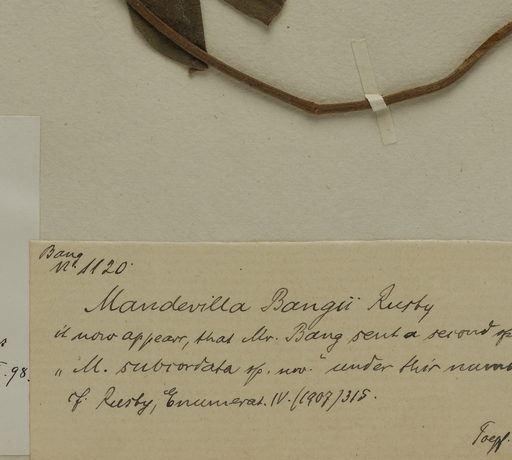 Bang
No 1120.
Mandevilla Bangii Rusby
it now appears, that Mr. Bang sent a second sp
„M. subcordata sp. nov." under this numb
cf. Rusby, Enumerat. IV. (1907) 315.
98.